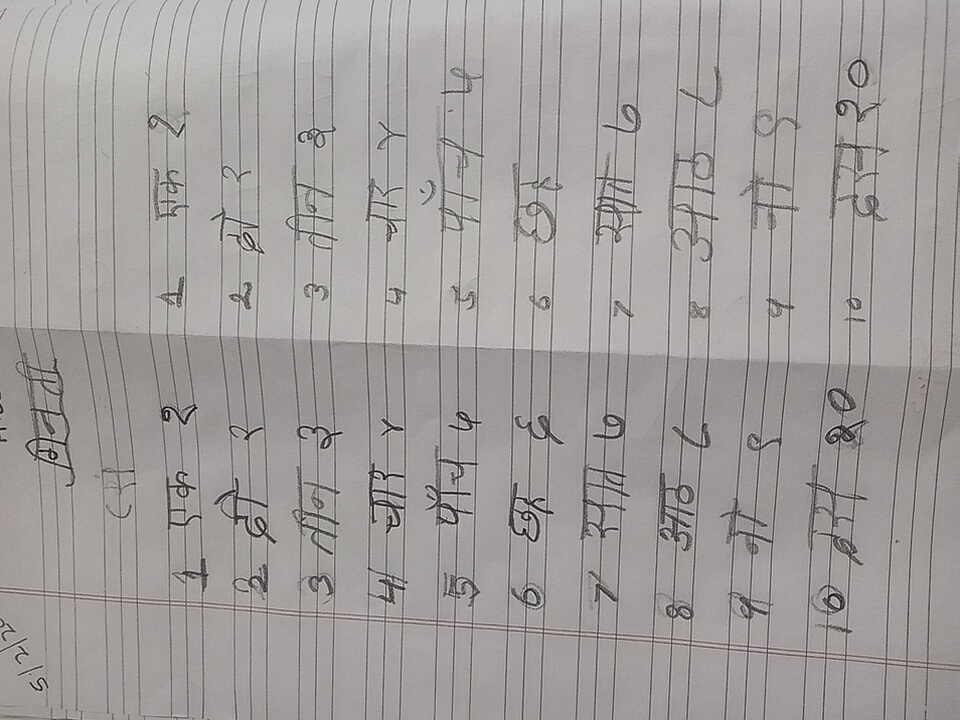 5/2/20
गिनती
1 एक १ 1 एक १
2 दो २ 2 दो २
3 तीन ३ 3 तीन ३
4 चार ४ 4 चार ४
5 पाँच ५ 5 पाँच ५
6 छह ६ 6 छह
7 सात ७ 7 सात ७
8 आठ ८ 8 आठ ८
9 नौ ९ 9 नौ ९
10 दस १० 10 दस १०